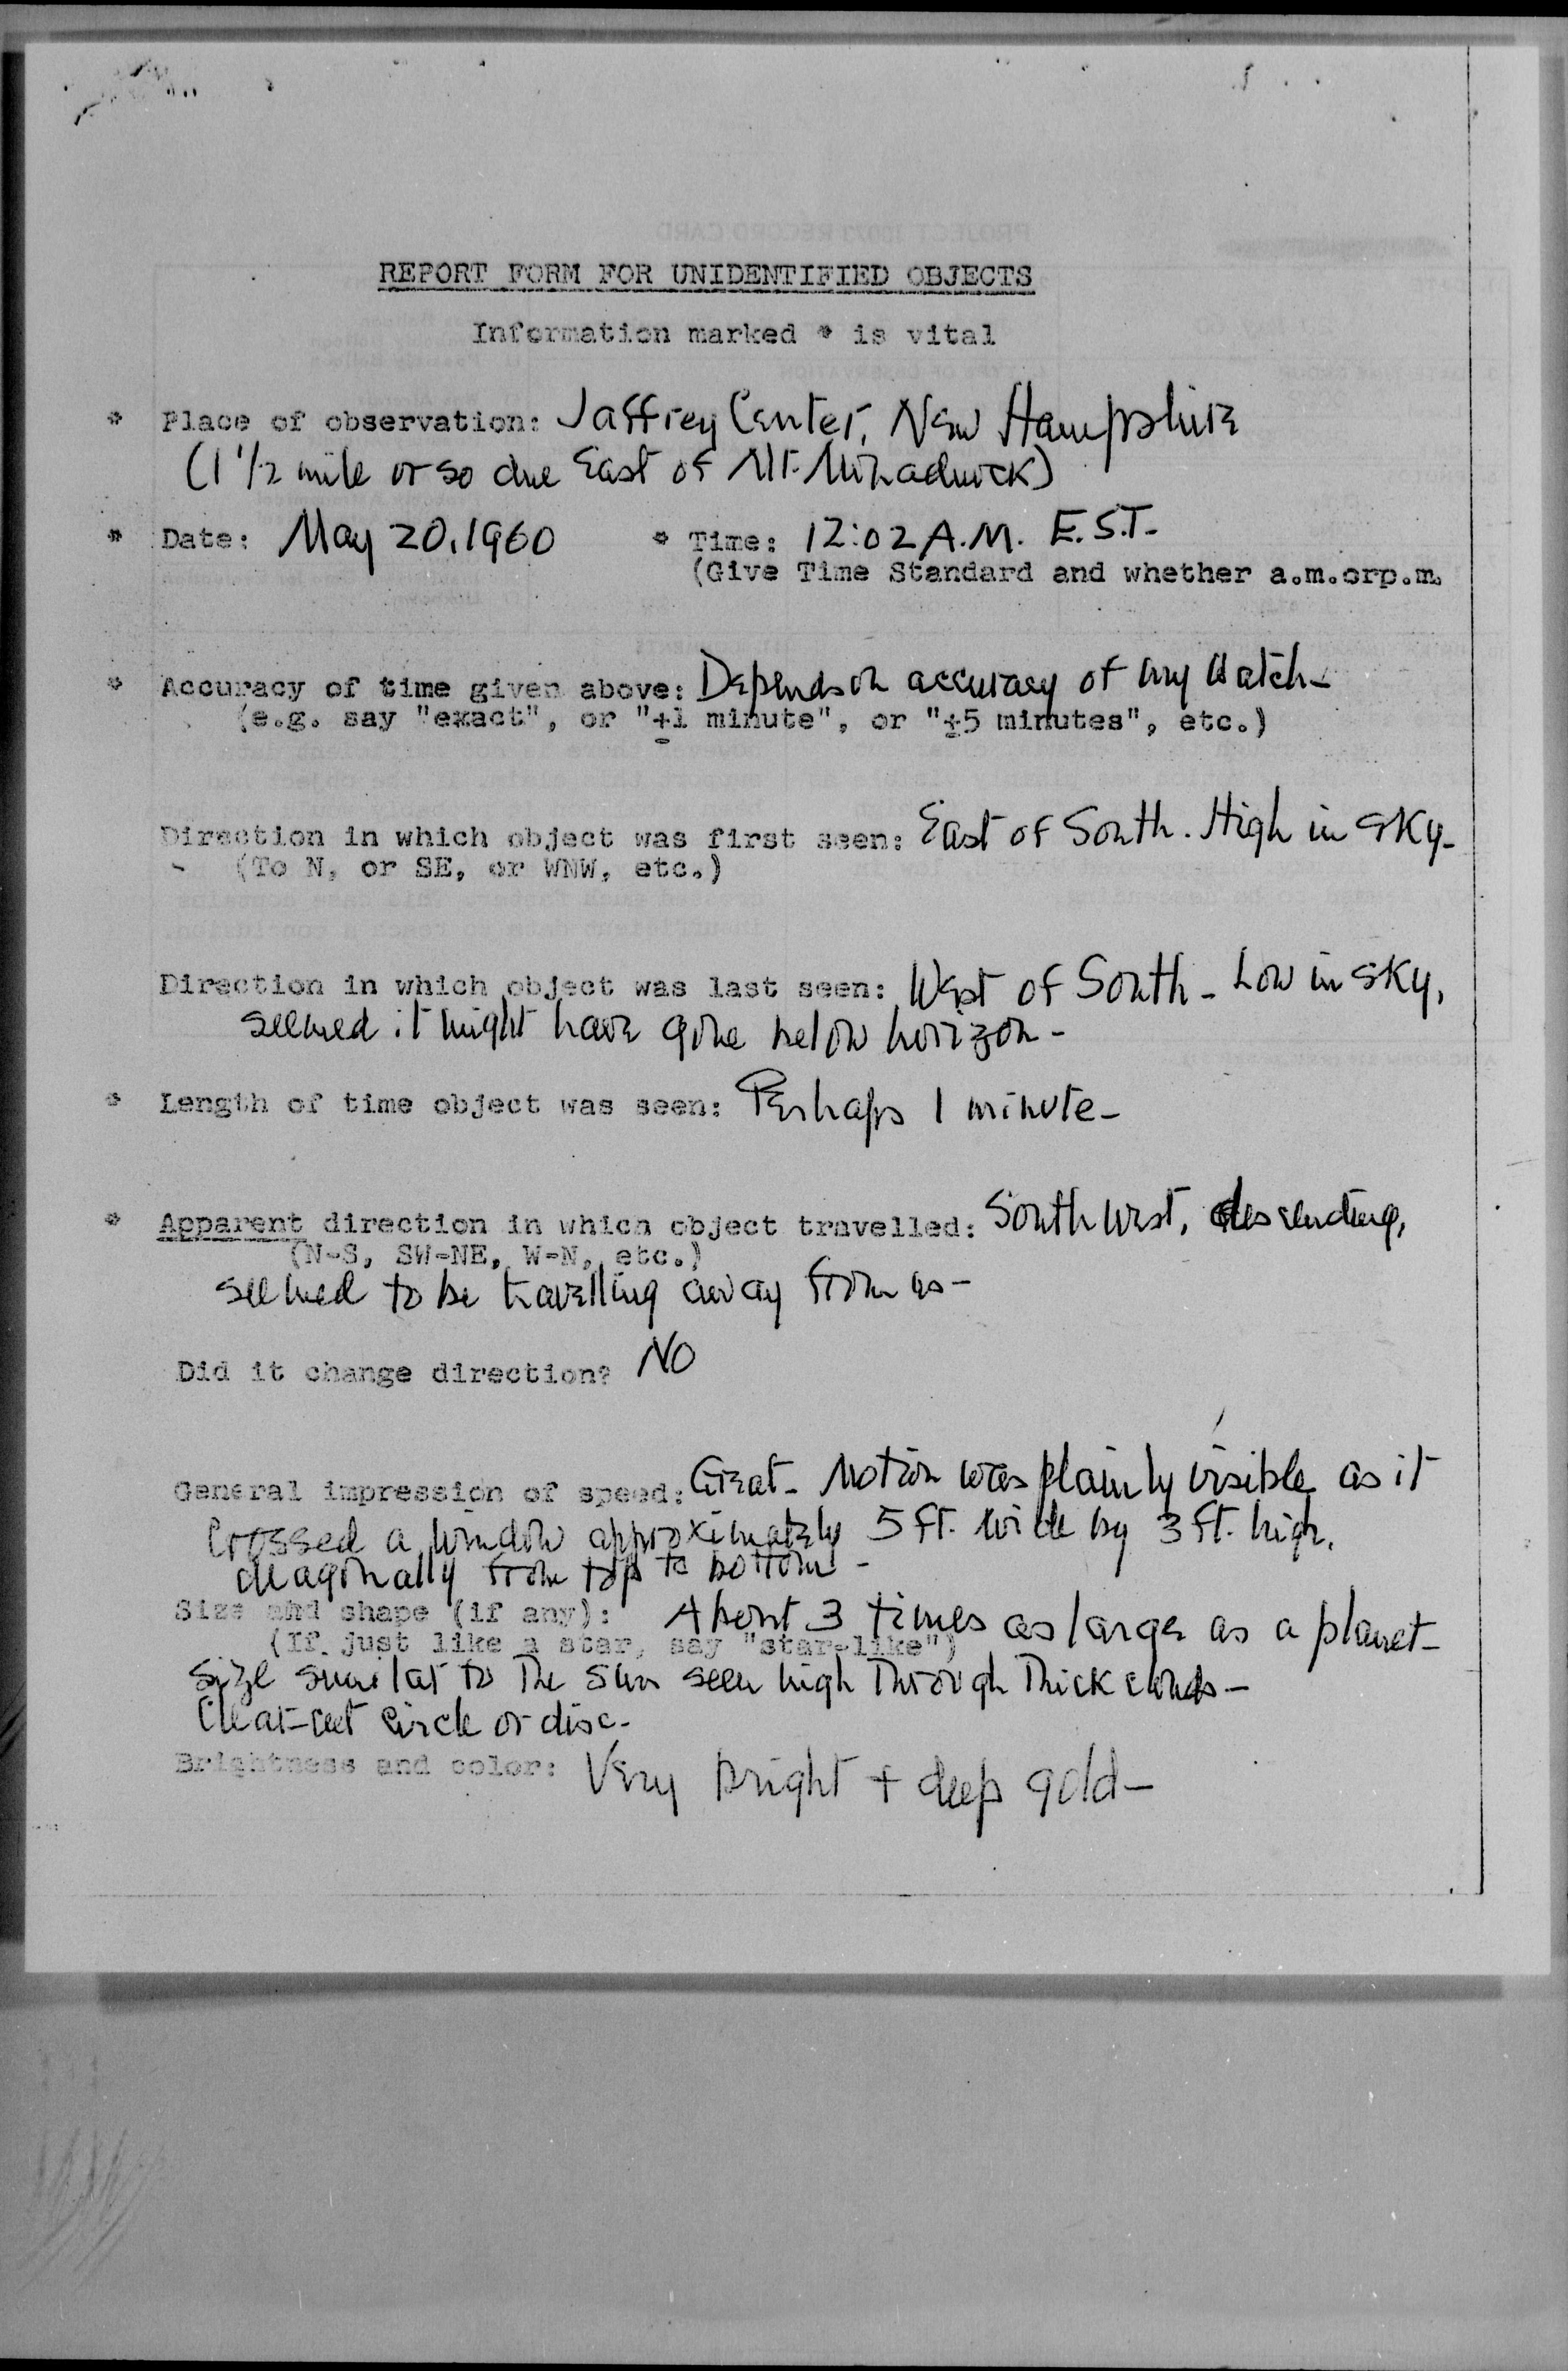 REPORT FORM FOR UNIDENTIFIED OBJECTS
Information marked * is vital
* Place of observation: Jaffrey Center, New Hampshire
(1 1/2 mile or so due East of Mt. Monadnock)
* Date: May 20, 1960 * Time: 12:02 A.M. E.S.T.
(Give Time Standard and whether a.m.orp.m.
* Accuracy of time given above: Depends on accuracy of my watch-
(e.g. say "exact", or "±1 minute", or "±5 minutes", etc.)
Direction in which object was first seen: East of South. High in sky-
(To N, or SE, or WNW, etc.)
Direction in which object was last seen: West of South - Low in sky,
seemed it might have gone below horizon-
* Length of time object was seen: Perhaps 1 minute-
* Apparent direction in which object travelled: Southwest, descending,
(N-S, SW-NE, W-N, etc.)
seemed to be travelling away from us-
Did it change direction? NO
General impression of speed: Great- Motion was plainly visible as it
crossed a window approximately 5 ft. wide by 3 ft. high,
diagonally from top to bottom -
Size and shape (if any): About 3 times as large as a planet-
(If just like a star, say "star-like")
size similar to the sun seen high through thick clouds-
Clear-cut circle or disc-
Brightness and color: Very bright + deep gold-